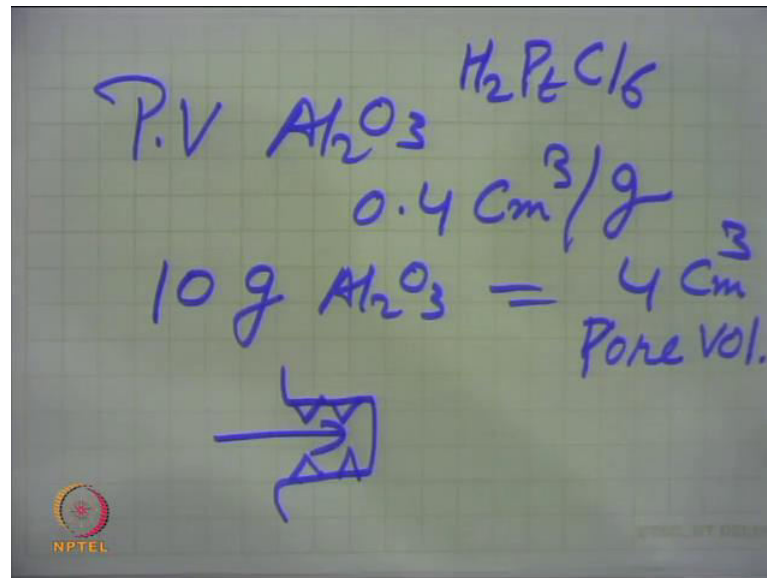 H₂PtCl6
P.V Al₂O₃
0.4 Cm³/g
10 g Al₂O₃ = 4 Cm³
Pore Vol.
NPTEL